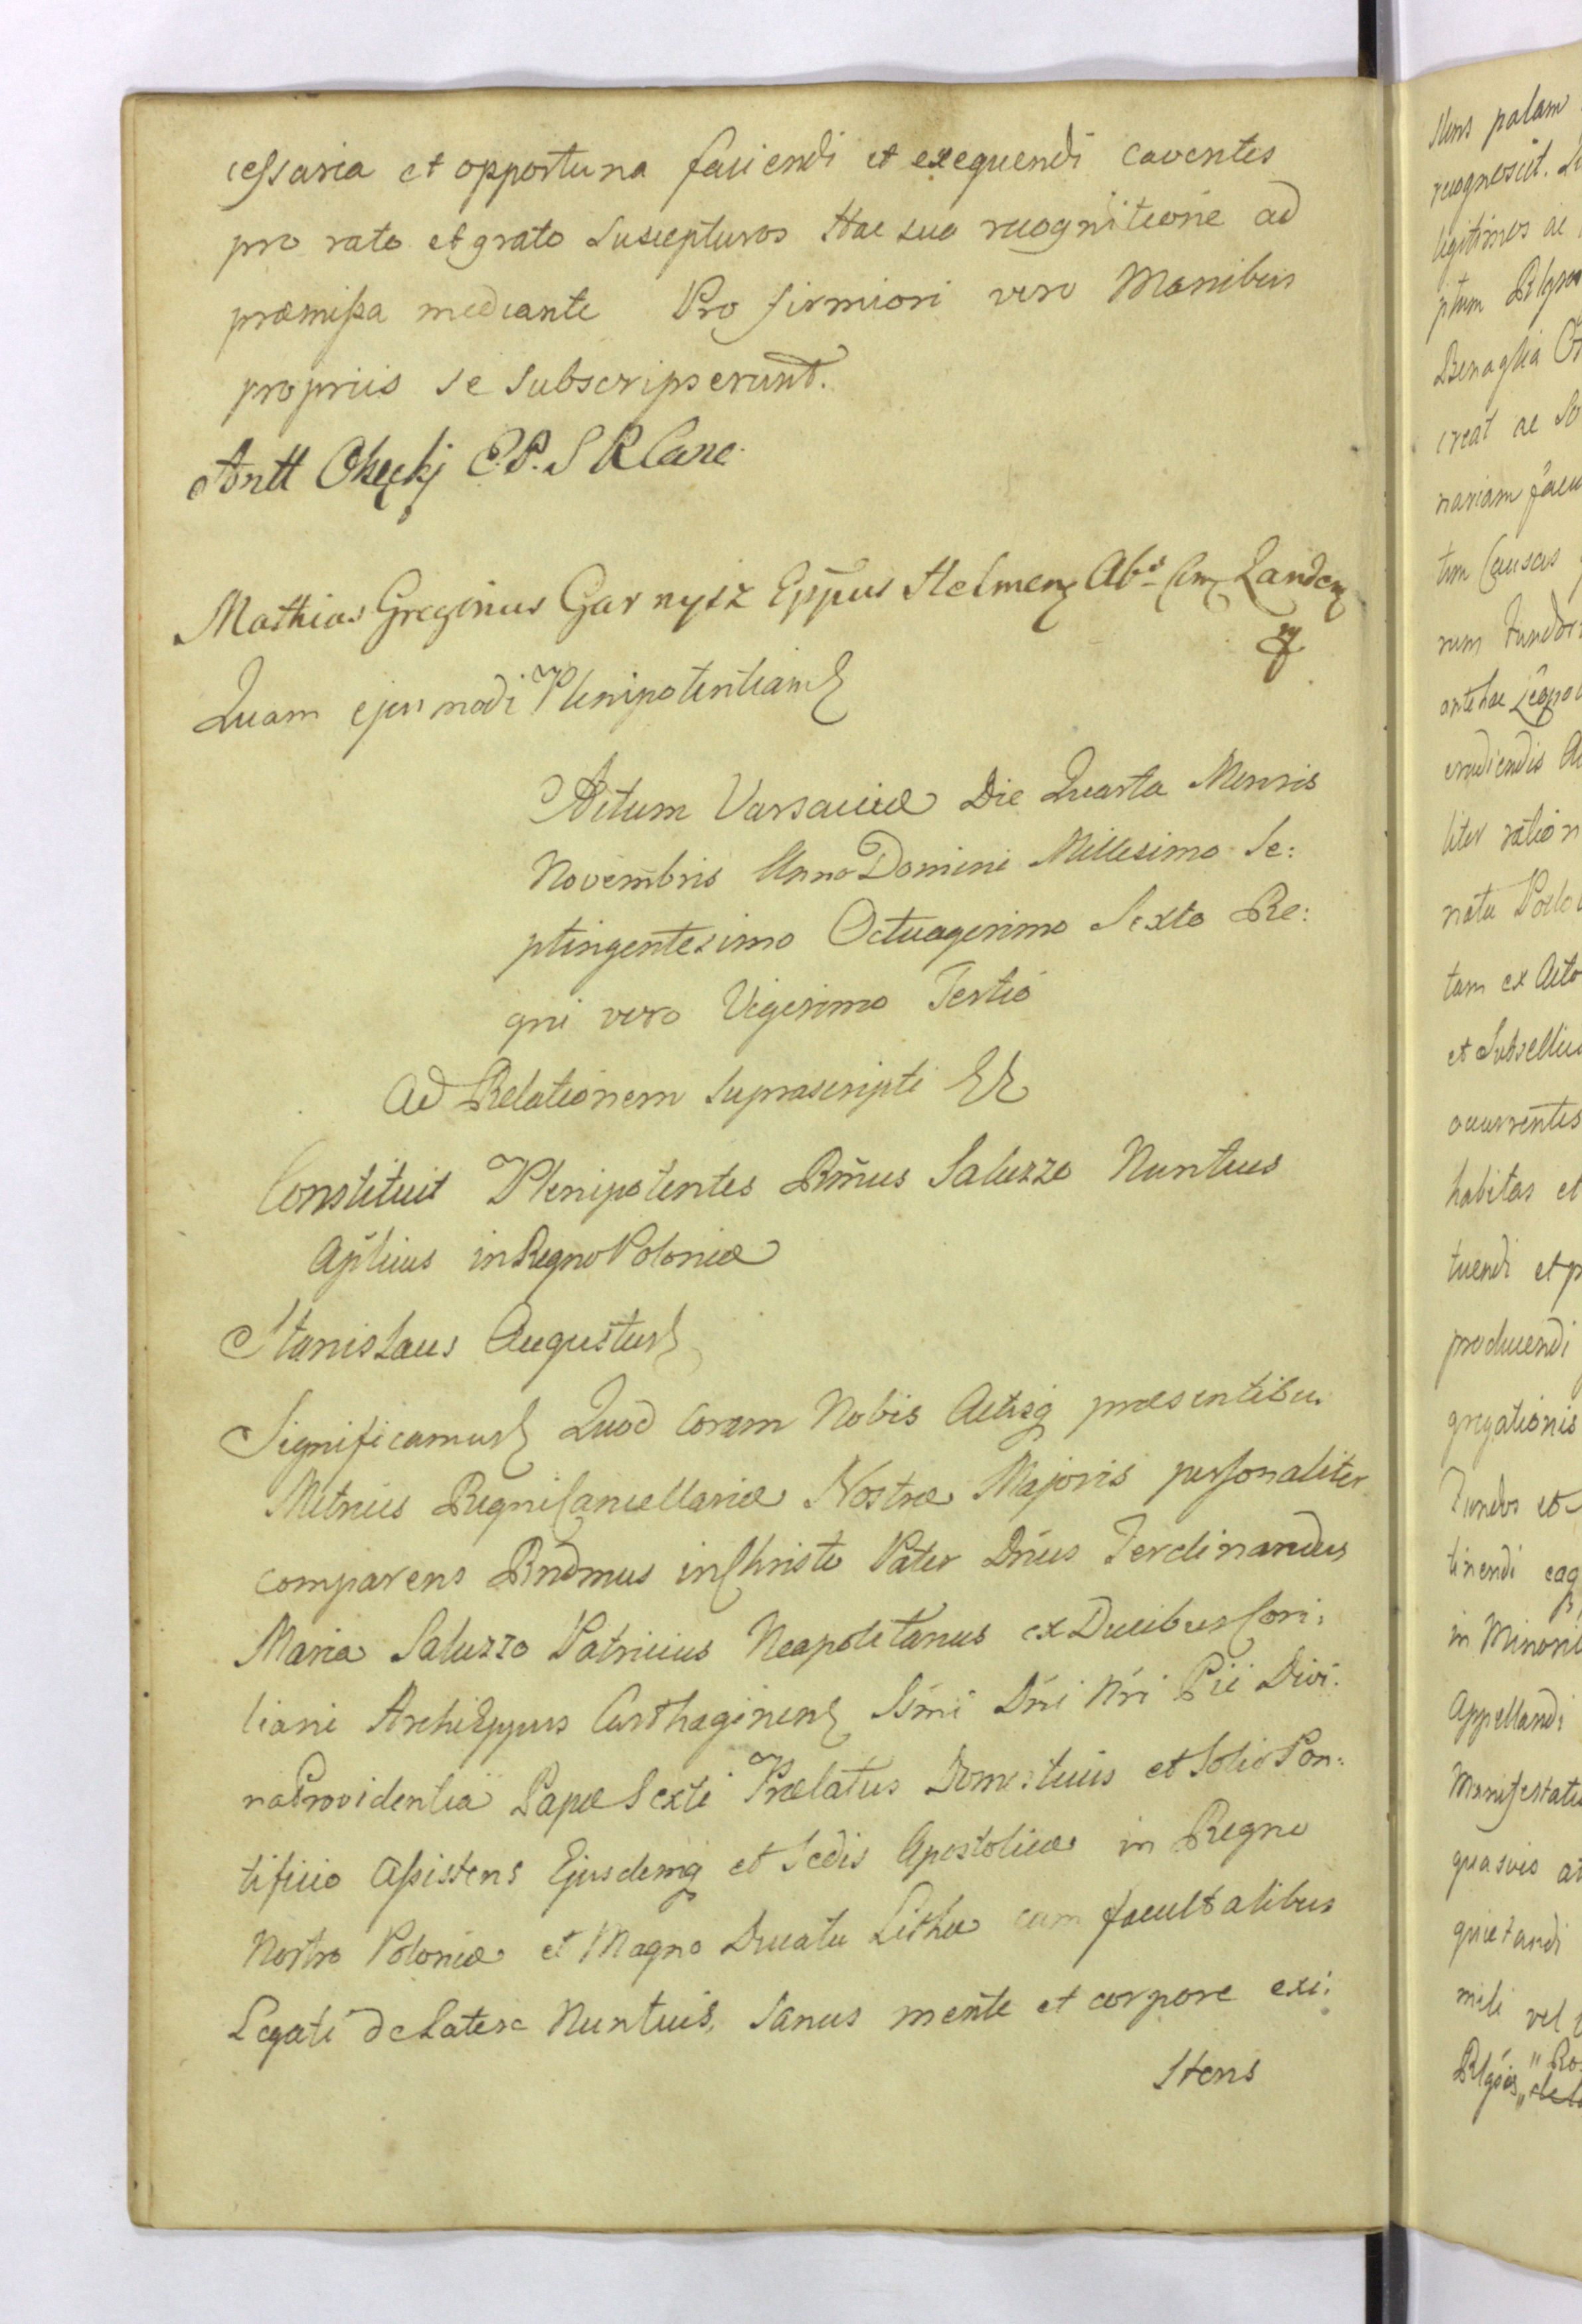 cessaria et opportuna faciendi et exequendi caventes
pro rato et grato suscepturos Hac sua recognitione ad
præmissa mediante Pro firmiori vero Manibus
propriis se subscripserunt.
Antt Okęckj E.P. S R Canc.
Mathias Greginus Garnysz Eppus Helmen Abs Landen
mp
Quam ejusmodi Plenipotentiam
Actum Varsaviæ Die Quarta Mensis
Novembris Anno Domini Millesimo Se:
ptingentesimo Octuagesimo Sexto Re:
gni vero Vigesimo Tertio
Ad Relationem Suprascripti
Constituit Plenipotentes Rmus Saluzzo Nuntius
Aplicus in Regno Poloniæ
Stanislaus Augustus
Significamus Quod Coram Nobis Actisq præsentibus
Metrices Regni Cancellariæ Nostræ Majoris personaliter
comparens Rndmus in Christo Pater Dnus Ferdinandus
Maria Saluzzo Patricius Neapolitanus ex Ducibus Cori:
liani ArchiEppus Carthaginen Ssmi Dni Nri Pii Divi:
na Providentia Papæ Sexti Prælatus Domesticus et Solio Pon:
tificio Assistens Ejusdemq et Sedis Apostolicæ in Regno
Nostro Poloniæ et Magno Ducatu Lithæ cum facultatibus
Legati de Latere Nuntius, Sanus mente et corpore exi:
stens
stens palam
recognoscit.
legitimos ac
ptum
Benaglia
creat ac
nariam
tim Causas
rum Fundor
antehac
erudiendis
liter ration
natu
tam ex Acto
et Subselliis
occurrentes
habitas et
tuendi et p
producendi
gregationis
Fundos et
tinendi eaq
in Minori
Appellandi
Manifestatio
quasvis at
quietandi
mili vel